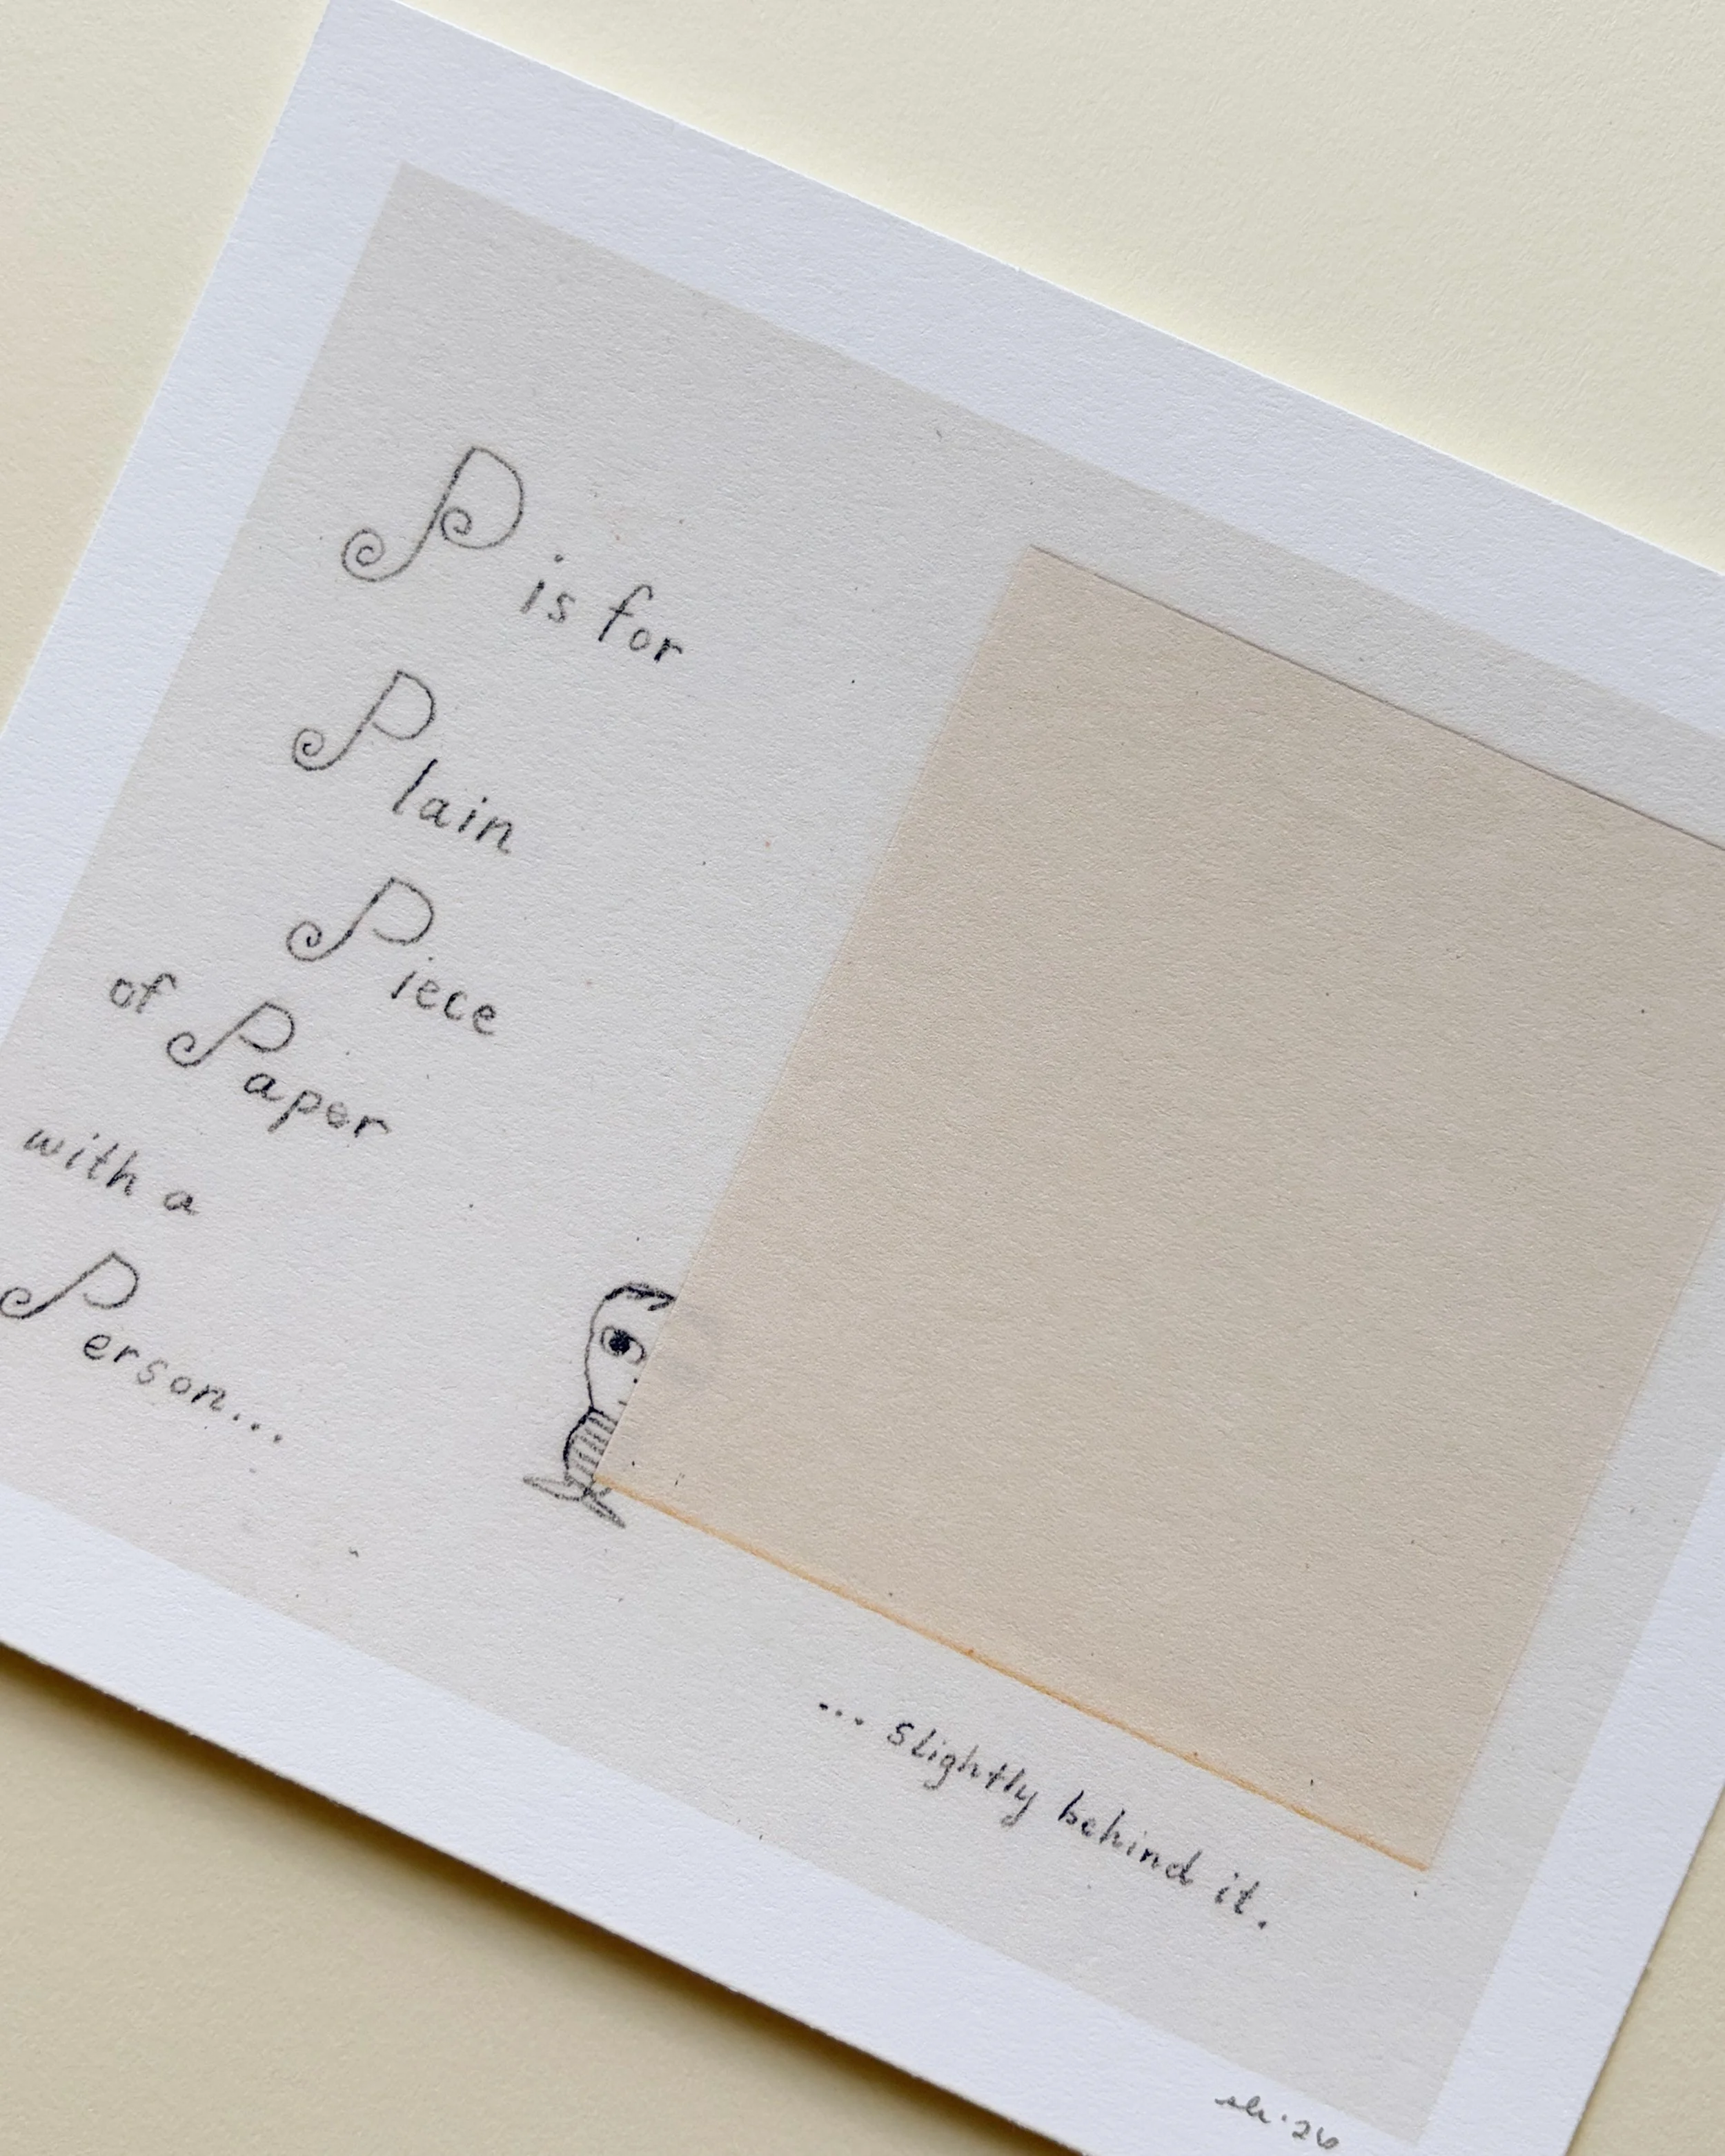 P is for
Plain
Piece
of Paper
with a
Person...
... slightly behind it.
'26